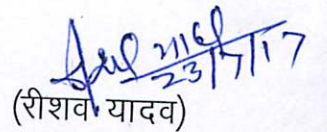 23/7/17
(रीशव यादव)